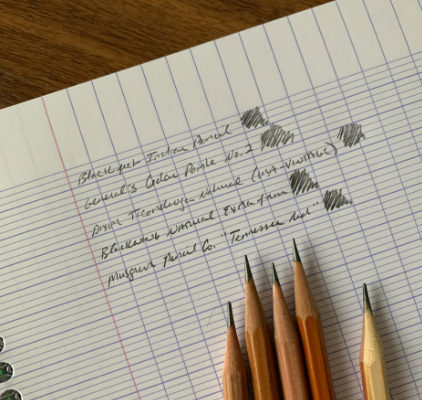 Blackfeet Indian Pencil
General's Cedar Pointe No. 1
Dixon Ticonderoga Natural (USA-VINTAGE)
Blackwing Natural Extra firm
Musgrave Pencil Co. "Tennessee Red"